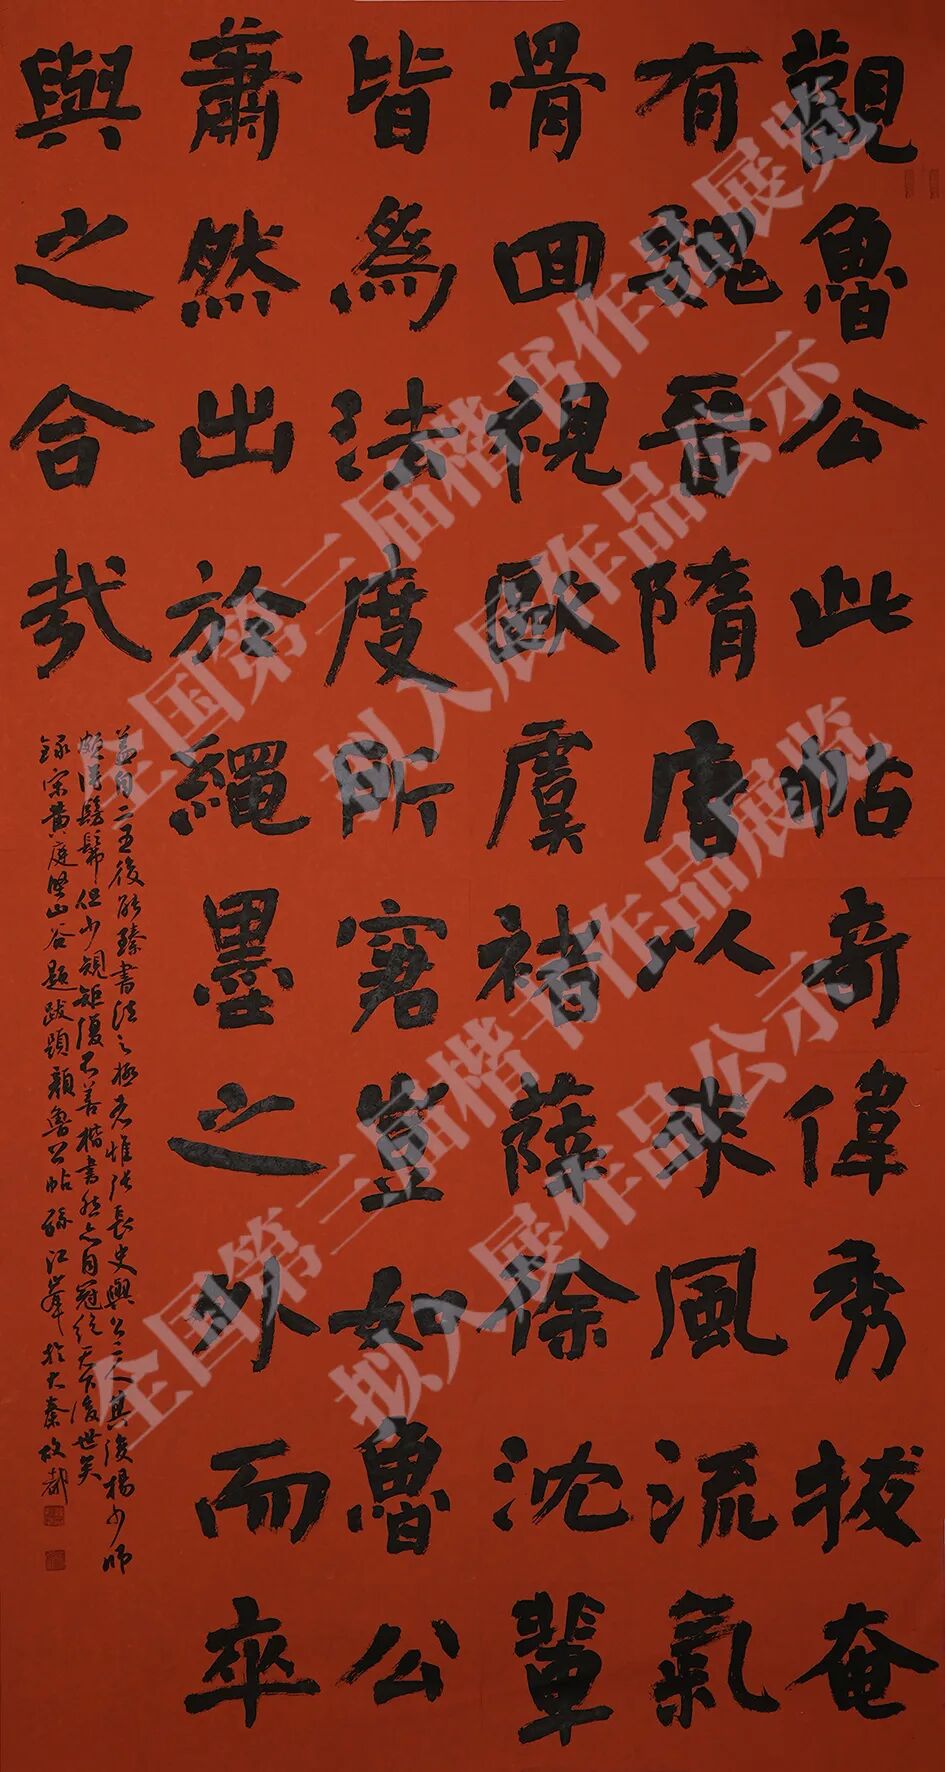 觀魯公此帖奇偉秀拔奄
有魏晉隋唐以來風流氣
骨回視歐虞褚薛徐沈輩
皆為法度所窘豈如魯公
蕭然出於繩墨之外而卒
與之合哉
蓋自二王後能臻書法之極者惟張長史與公二人其後楊少師
頗得髣髴但少規矩復不善楷書然亦自冠絕天下後世矣
錄宋黃庭堅山谷題跋題顏魯公帖孫江峯於大秦故都
全国第三届楷书作品展览
拟入展作品公示
全国第三届楷书作品展览
拟入展作品公示